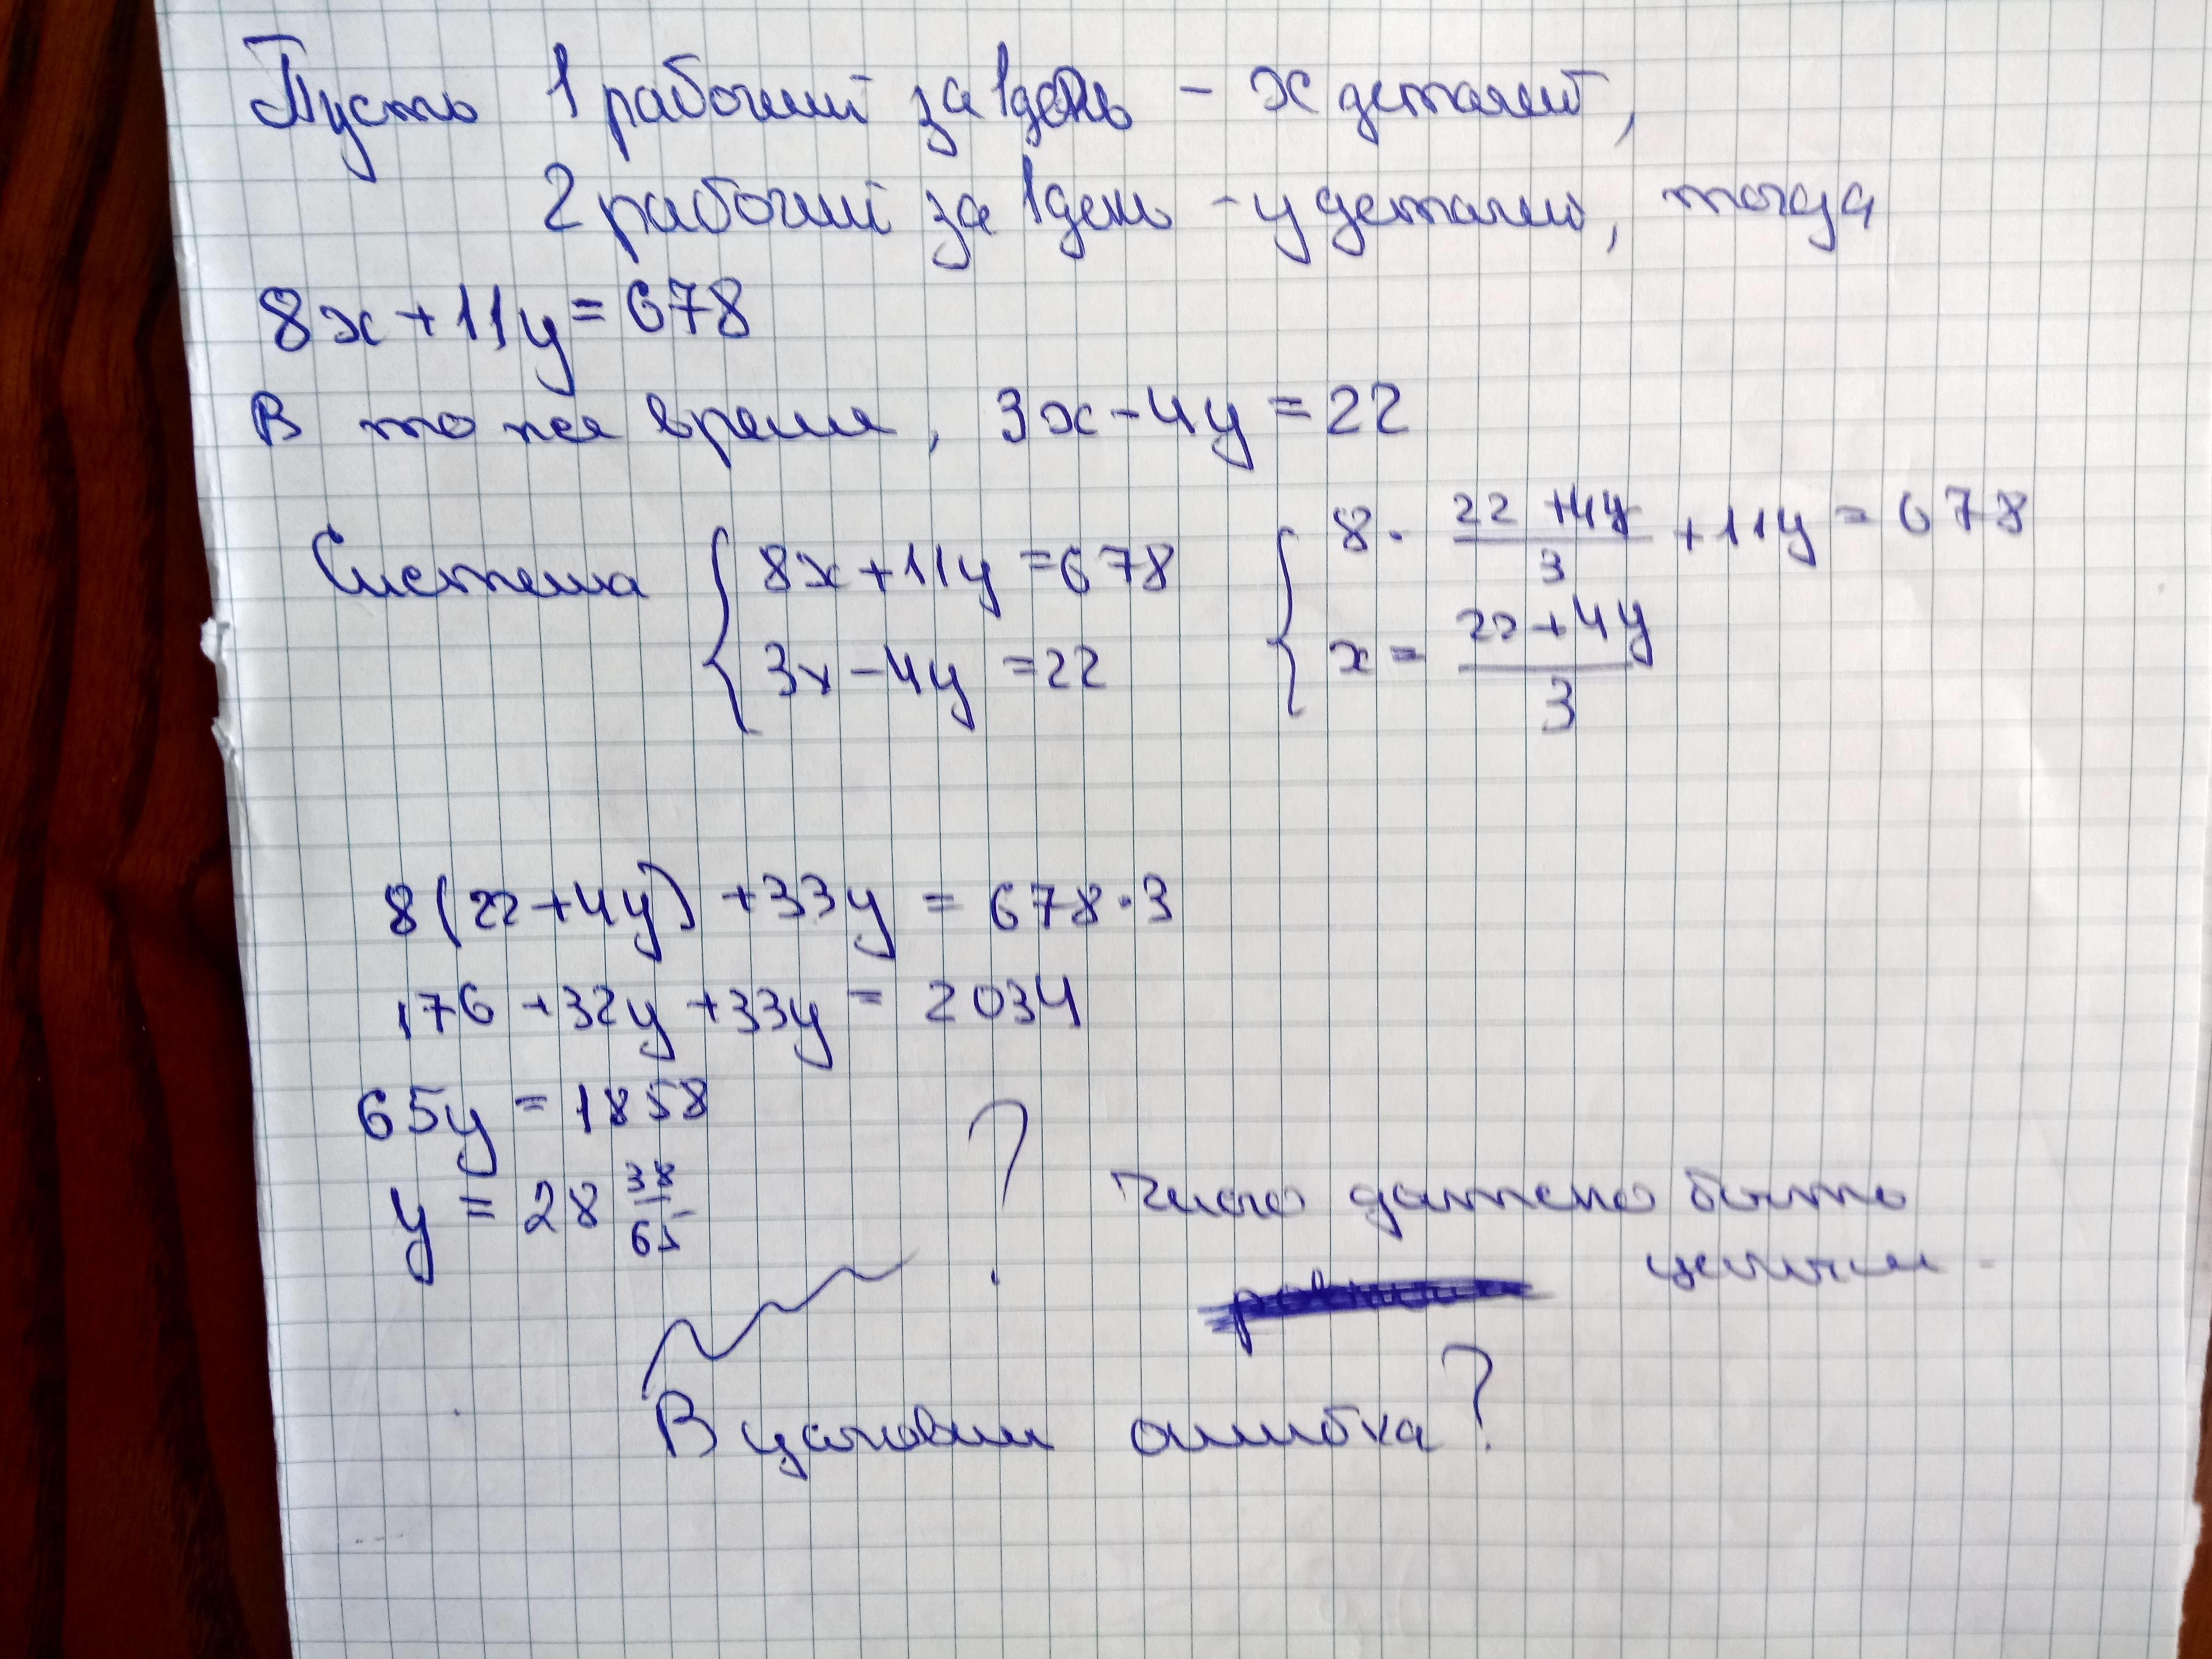 Пусть 1 рабочий за 1 день - x деталей,
2 рабочий за 1 день - y деталей, тогда
8x+11y=678
В то же время, 3x-4y=22
Система { 8x+11y=678 { 8·(22+4y)/3+11y=678
3x-4y=22 x=(22+4y)/3
8(22+4y)+33y=678·3
176+32y+33y=2034
65y=1858
y=28 38/65 ? Число должно быть
целым.
В условии ошибка?